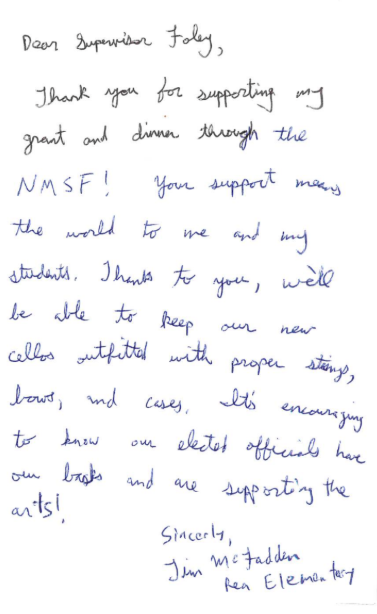 Dear Supervisor Foley,
Thank you for supporting my
grant and dinner through the
NMSF! Your support means
the world to me and my
students. Thanks to you, we'll
be able to keep our new
cellos outfitted with proper strings,
bows, and cases. It's encouraging
to know our elected officials have
our backs and are supporting the
arts!
Sincerly,
Jim McFadden
Rea Elementary